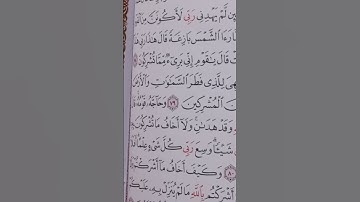 لَّمْ يَهْدِنِى رَبِّى لَأَكُونَنَّ مِنَ
رَءَا ٱلشَّمْسَ بَازِغَةً قَالَ هَٰذَا رَبِّى
قَالَ يَٰقَوْمِ إِنِّى بَرِىٓءٌ مِّمَّا تُشْرِكُونَ
لِلَّذِى فَطَرَ ٱلسَّمَٰوَٰتِ وَٱلْأَرْ
ٱلْمُشْرِكِينَ ٧٩ وَحَآجَّهُۥ قَوْمُهُۥ
وَقَدْ هَدَىٰنِ ۚ وَلَآ أَخَافُ مَا تُشْرِكُونَ
شَيْـًٔا ۗ وَسِعَ رَبِّى كُلَّ شَىْءٍ عِلْمًا
٨٠ وَكَيْفَ أَخَافُ مَآ أَشْرَكْتُمْ
أَشْرَكْتُم بِٱللَّهِ مَا لَمْ يُنَزِّلْ بِهِۦ عَلَيْكُ